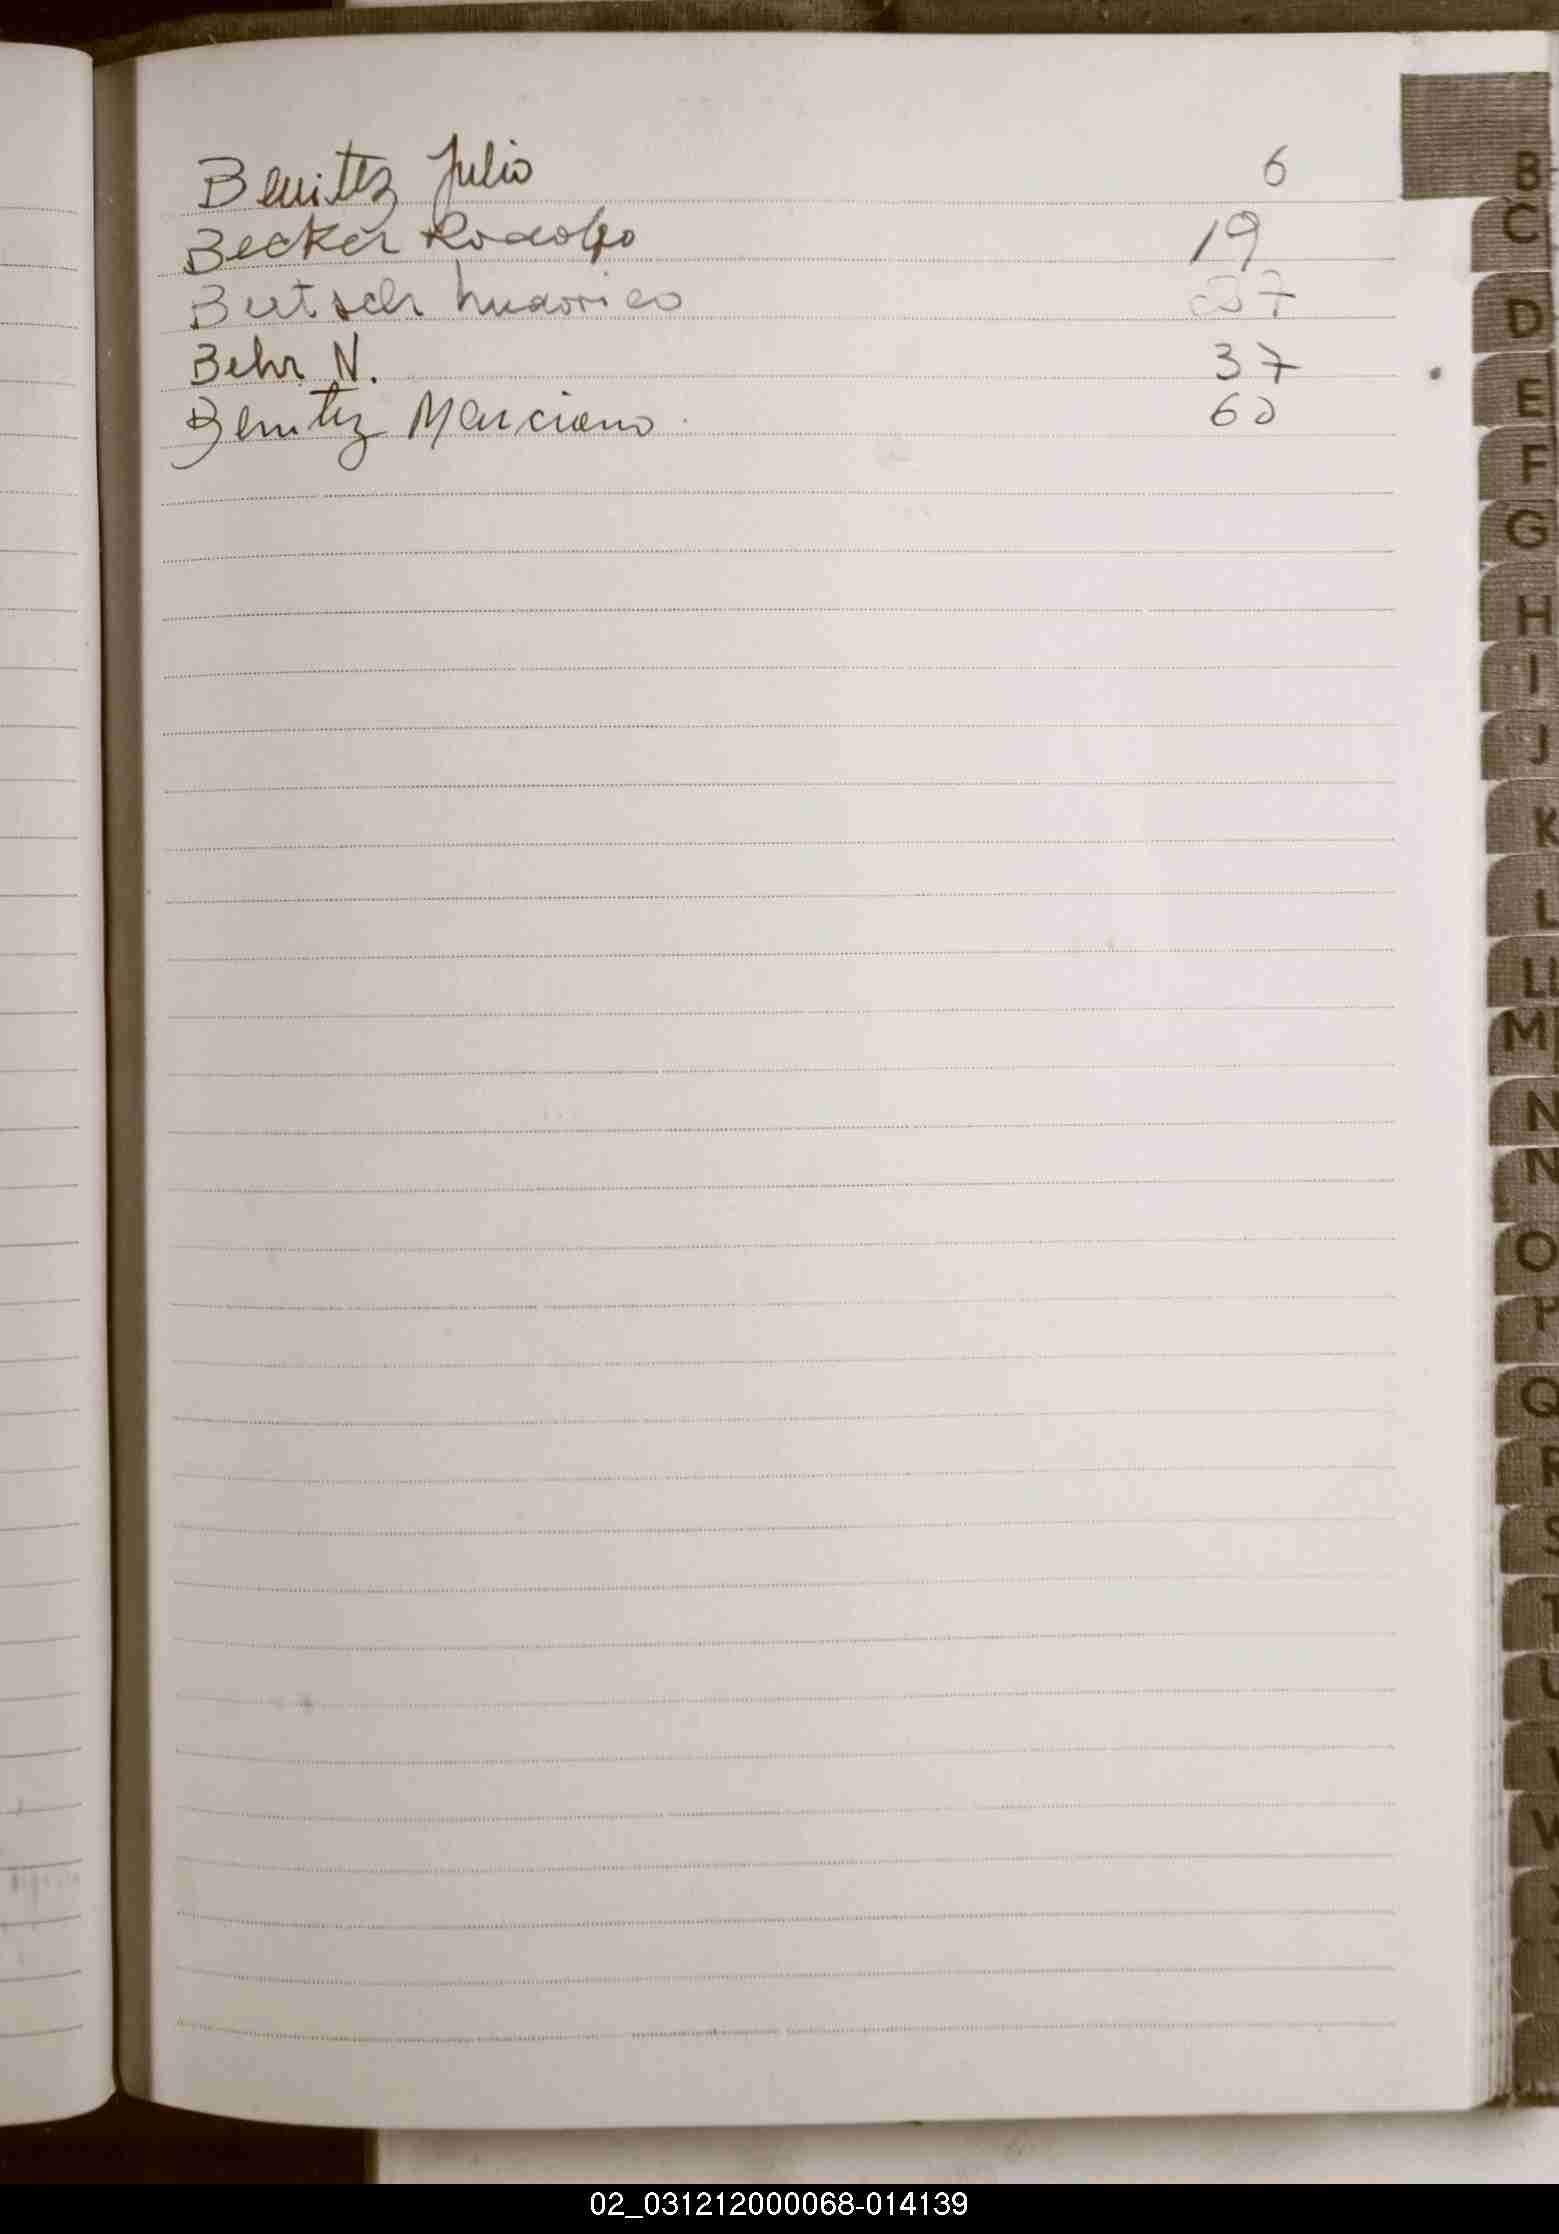 Benitez Julio 6
Becker Rodolfo 19
Bertsch Ludovico 37
Behr N. 37
Benitez Marciano 60
B
C
D
E
F
G
H
I
J
K
L
LL
M
N
N
O
P
Q
R
S
T
U
V
02_031212000068-014139